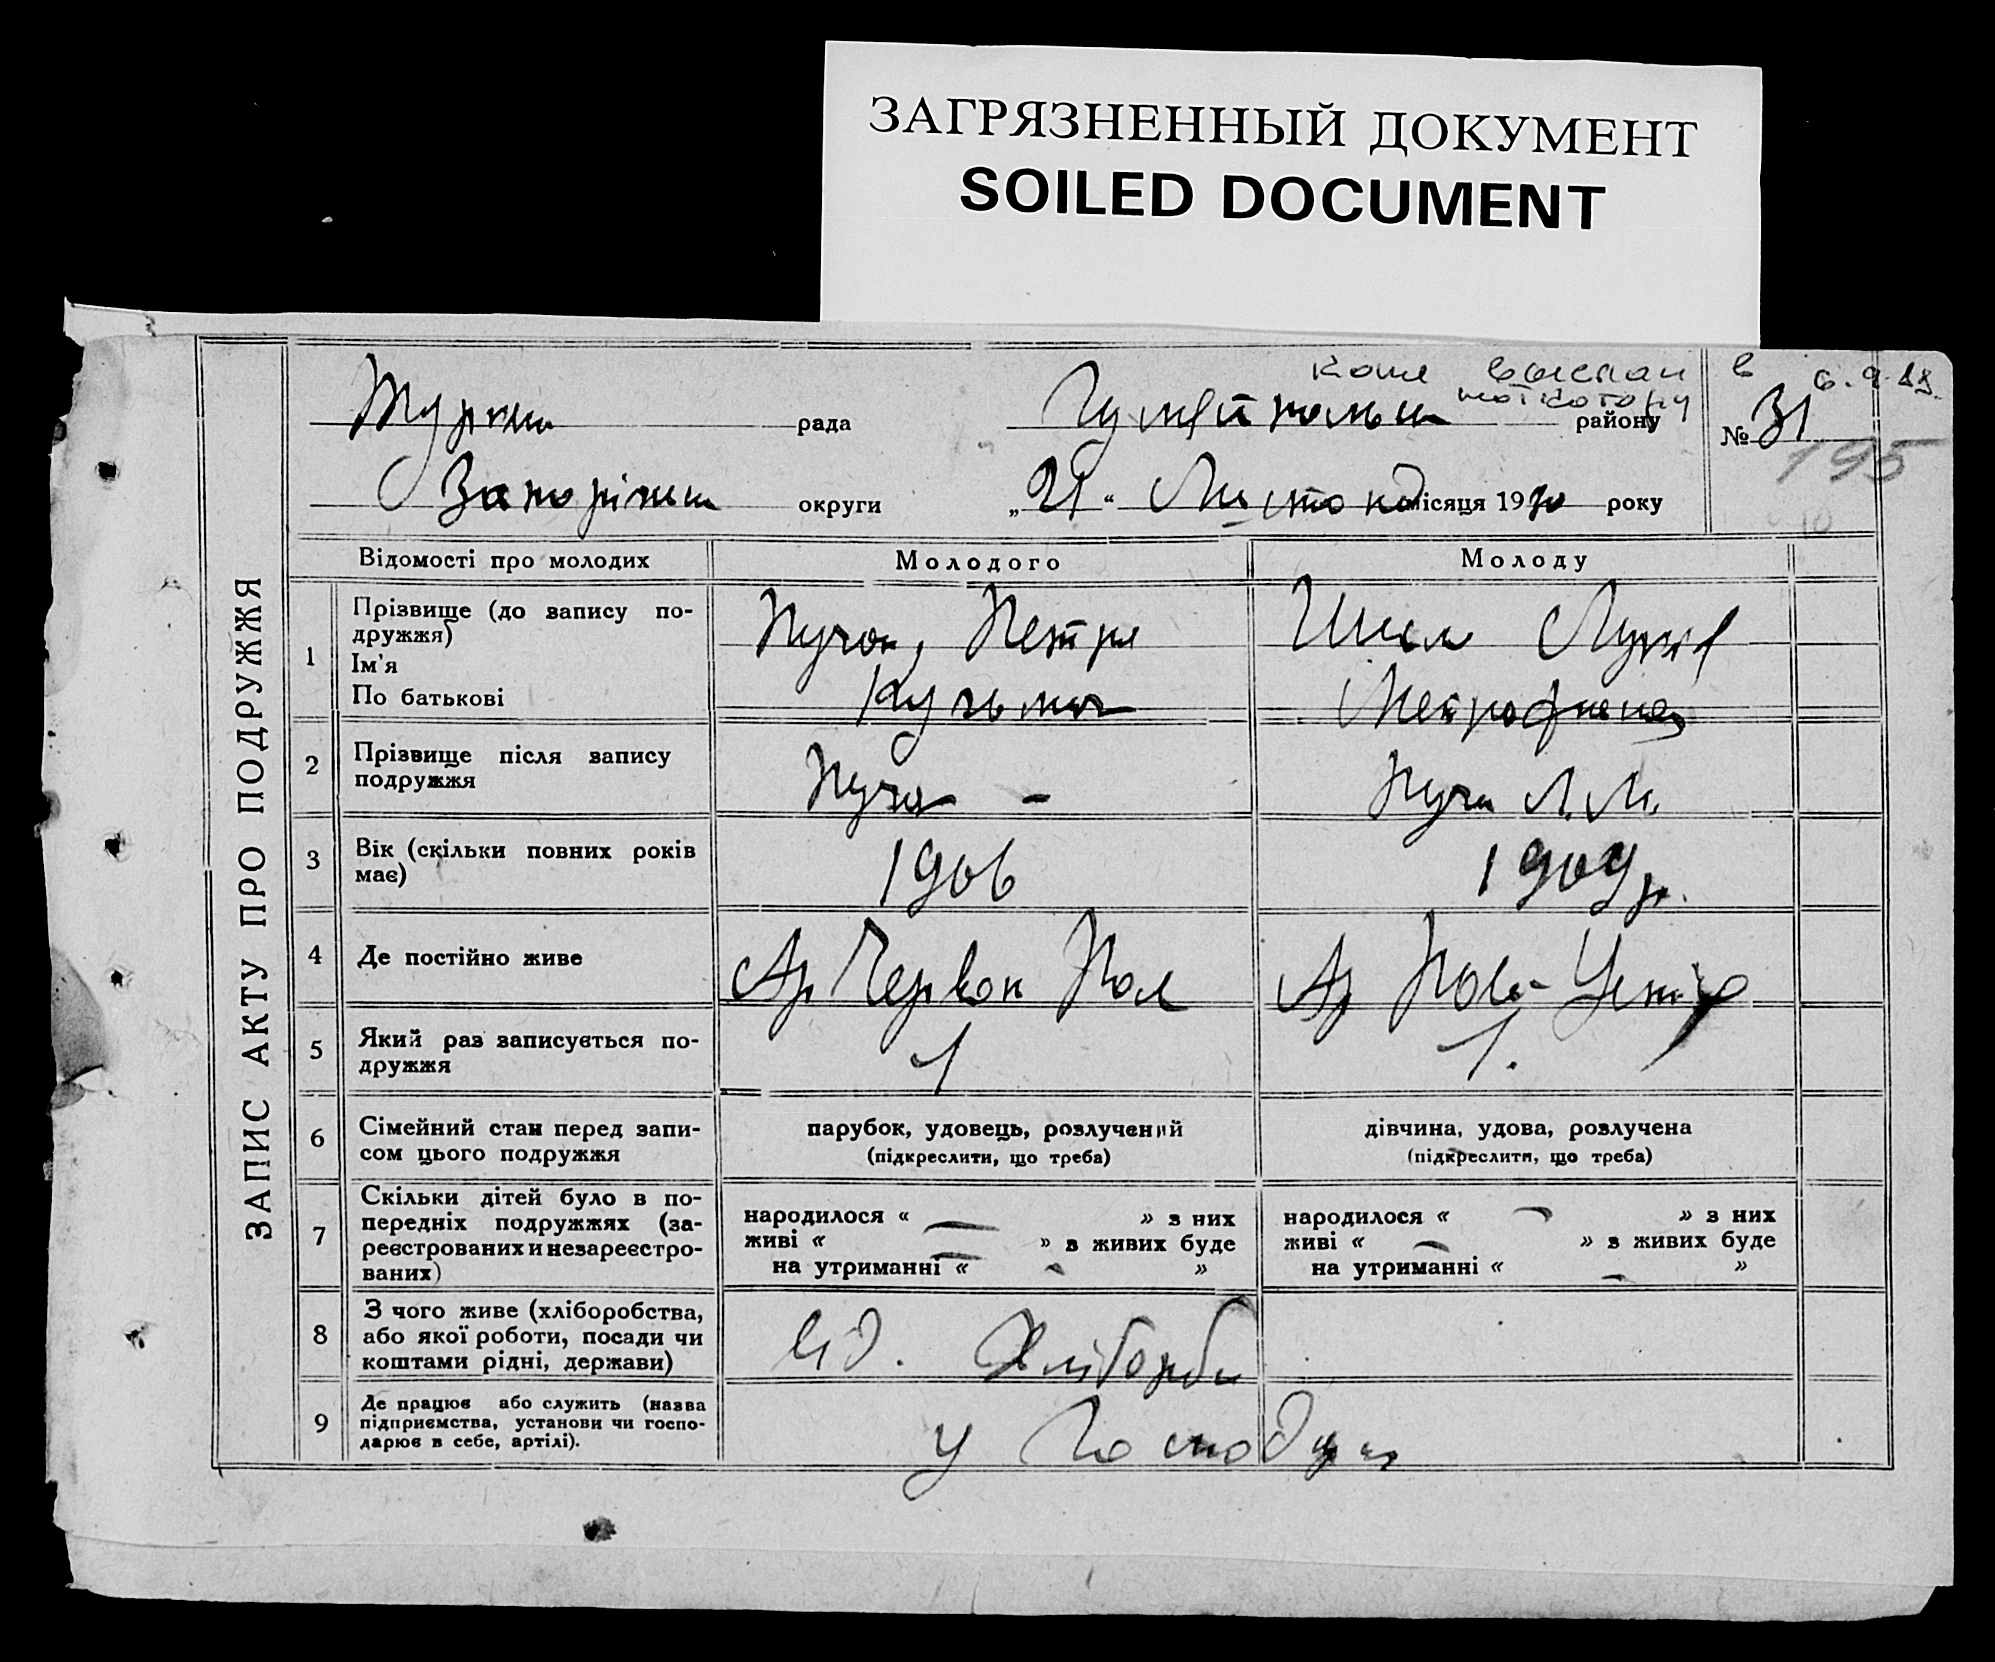 ЗАГРЯЗНЕННЫЙ ДОКУМЕНТ
SOILED DOCUMENT
ЗАПИС АКТУ ПРО ПОДРУЖЖЯ
рада
району
№ 31
195
округи
„21“ Листопад місяця 1930 року
Відомості про молодих
Молодого
Молоду
1
Прізвище (до запису по-
дружжя)
Ім'я
По батькові
Пуча, Петро
Кузьмич
2
Прізвище після запису
подружжя
Пуча -
Пуча Л. М.
3
Вік (скільки повних років
має)
1906
1909 р.
4
Де постійно живе
Ар Червон Пол
5
Який раз записується по-
дружжя
1
1.
6
Сімейний стан перед запи-
сом цього подружжя
парубок, удовець, розлучений
(підкреслити, що треба)
дівчина, удова, розлучена
(підкреслити, що треба)
7
Скільки дітей було в по-
передніх подружжях (за-
реєстрованих и незареєстро-
ваних)
народилося « — » з них
живі « » з живих буде
на утриманні « - »
народилося « — » з них
живі « — » з живих буде
на утриманні « - »
8
З чого живе (хліборобства,
або якої роботи, посади чи
коштами рідні, держави)
від.
9
Де працює або служить (назва
підприємства, установи чи госпо-
дарює в себе, артілі).
у